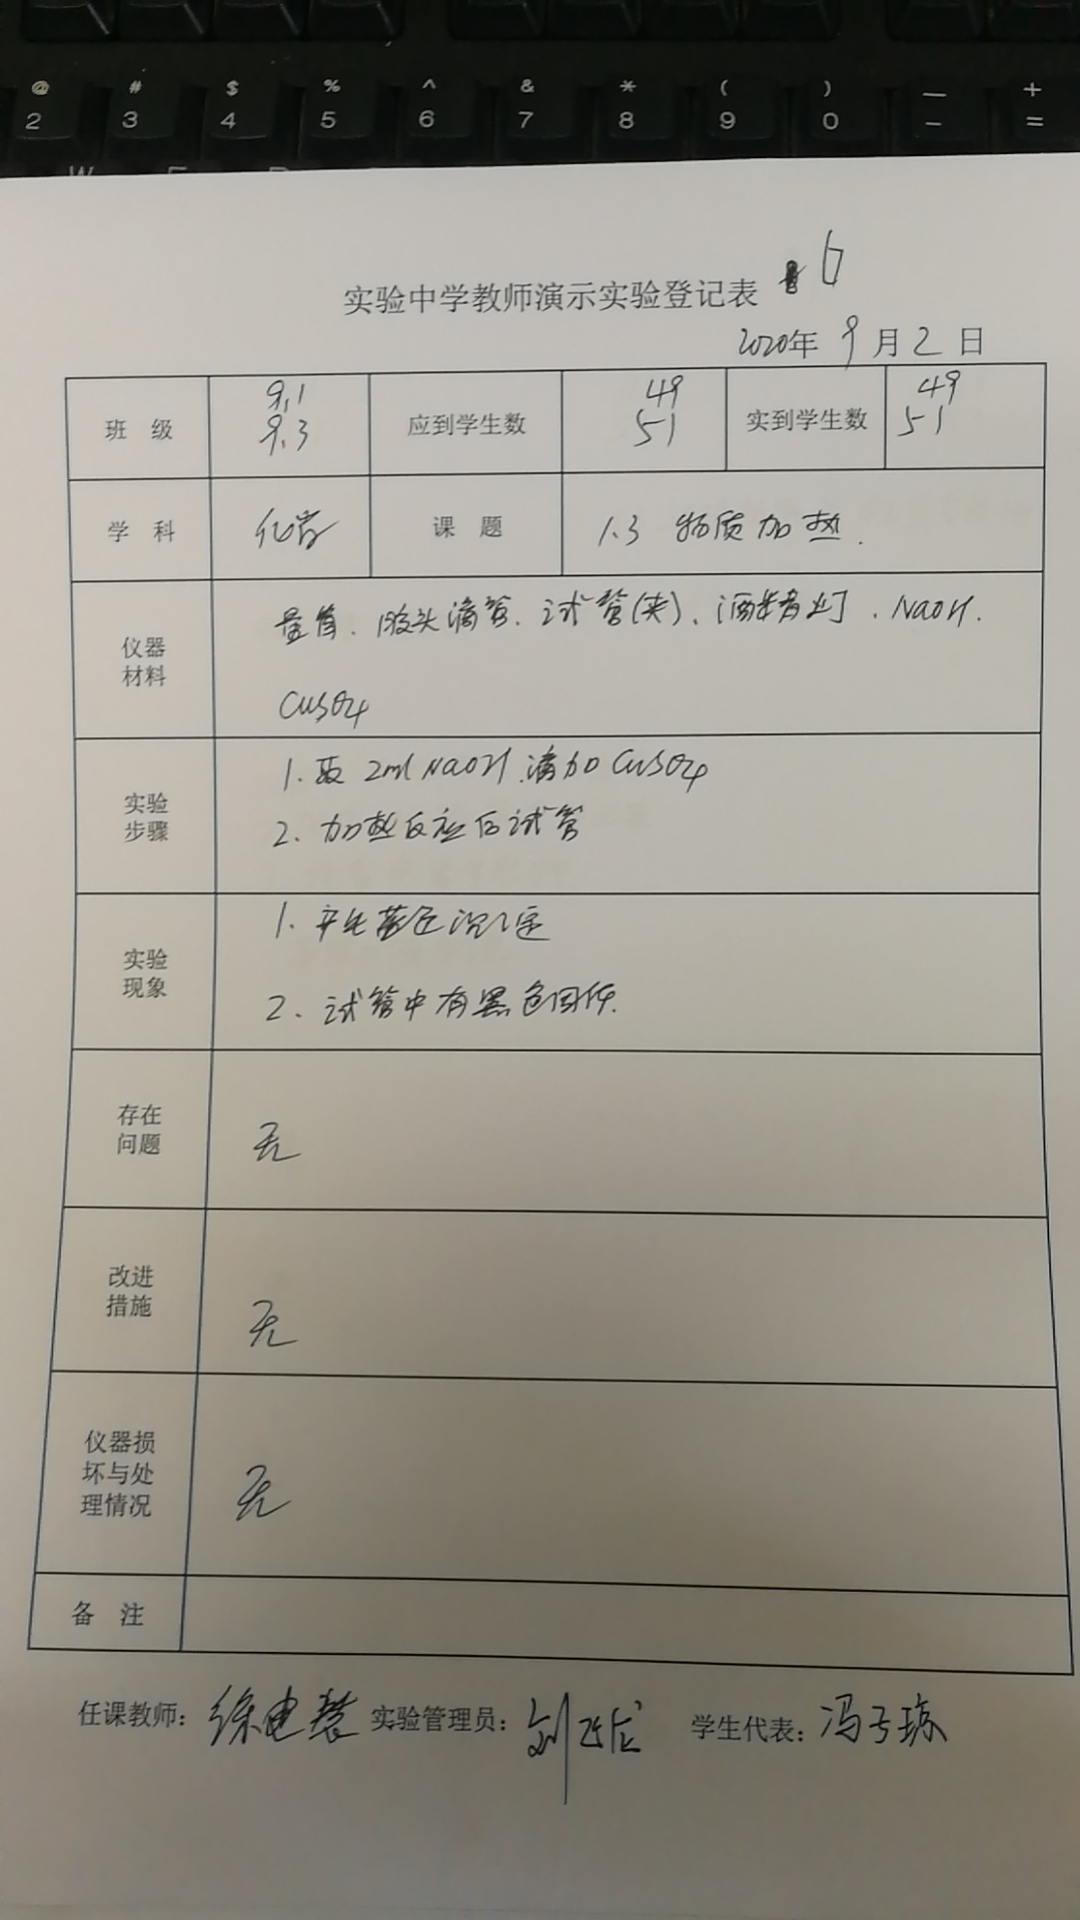 @ # $ % ^ & * ( ) — +
2 3 4 5 6 7 8 9 0 - =
实验中学教师演示实验登记表 6
2020年 9月2日
班 级 9.1 9.3 应到学生数 49 51 实到学生数 49 51
学 科 化学 课 题 1.3 物质加热.
仪器材料 量筒、胶头滴管、试管(夹)、酒精灯、NaOH.
CuSO4
实验步骤 1. 取 2ml NaOH 滴加 CuSO4
2. 加热反应后试管
实验现象 1. 产生蓝色沉淀
2. 试管中有黑色固体.
存在问题 无
改进措施 无
仪器损坏与处理情况 无
备 注
任课教师: 实验管理员: 刘 学生代表: 冯子